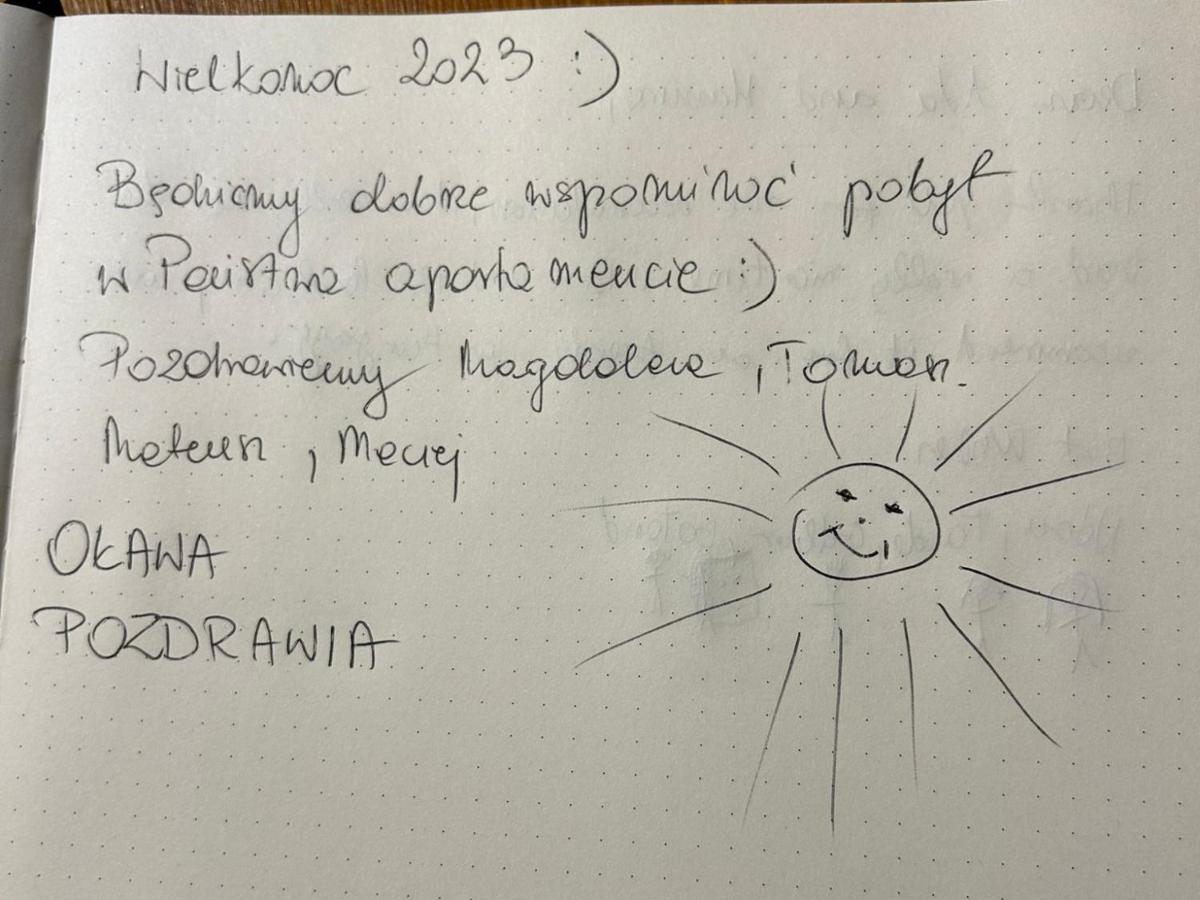 Wielkanoc 2023 :)
Będziemy dobrze wspominać pobyt
w Państwa apartamencie :)
Pozdrawiamy Magdalena, Tomasz.
Mateusz, Maciej
OŁAWA
POZDRAWIA